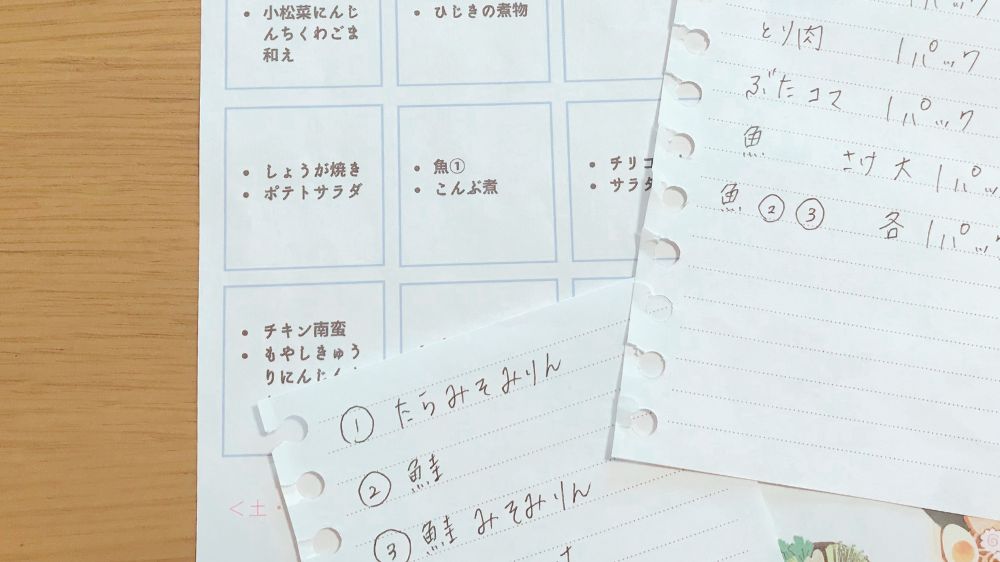 小松菜にんじ
んちくわごま
和え
ひじきの煮物
しょうが焼き
ポテトサラダ
魚①
こんぶ煮
チリコ
サラダ
チキン南蛮
もやしきゅう
りにんたく
<土・
とり肉 1パック
ぶたコマ 1パック
魚 さけ 大 1パッ
魚 ② ③ 各 1パッ
① たらみそみりん
② 鮭
③ 鮭 みそみりん